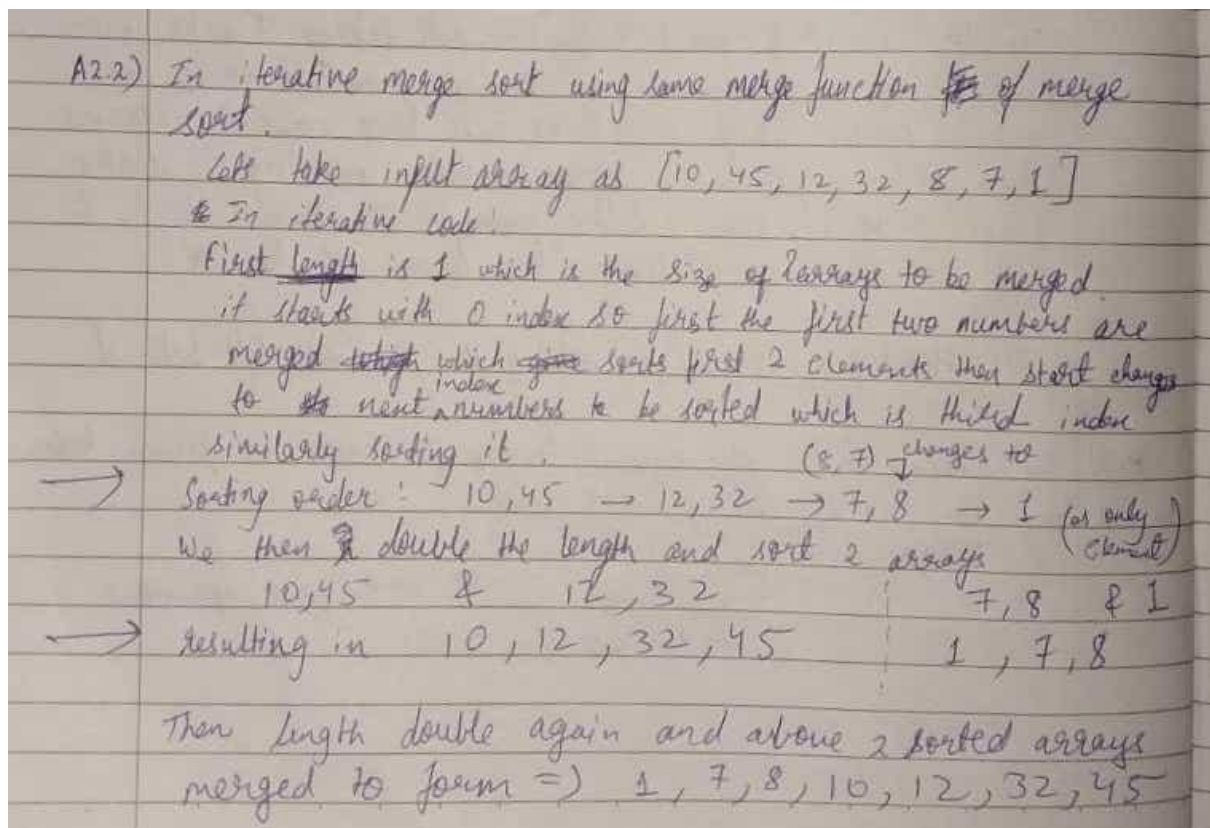 A2.2) In iterative merge sort using same merge function of merge
sort.
Lets take input array as [10, 45, 12, 32, 8, 7, 1]
In iterative code:
First length is 1 which is the size of 2 arrays to be merged.
it starts with 0 index so first the first two numbers are
merged which sorts first 2 elements then start changes
to next index numbers to be sorted which is third index
similarly sorting it.
(8, 7) changes to
→ Sorting order: 10,45 → 12,32 → 7,8 → 1 (as only element)
We then double the length and sort 2 arrays
10,45 & 12,32 7,8 & 1
→ resulting in 10, 12, 32, 45 1, 7, 8
Then length double again and above 2 sorted arrays
merged to form => 1, 7, 8, 10, 12, 32, 45